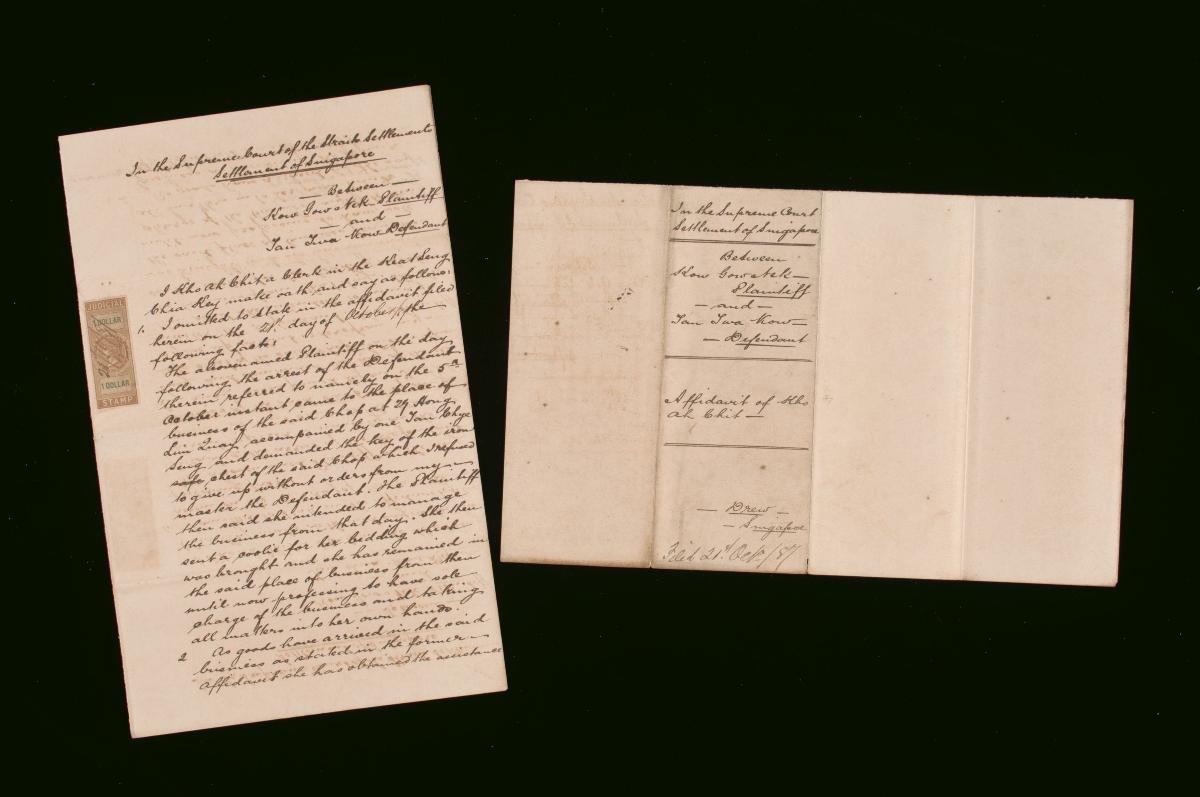 In the Supreme Court of the Straits Settlements
Settlement of Singapore
— Between —
Kow Gow & Nek Plaintiff
— and —
Tan Twa Kow Defendant
I Kho Ah Chit a Clerk in the Keat Seng
Chia Key make oath and say as follows:
1. I omitted to state in the affidavit filed
herein on the 21st day of October / the
following facts:
The abovenamed Plaintiff on the day
following the arrest of the Defendant
therein referred to namely on the 5th
October instant came to the place of
business of the said Chop at 29 Hong
Lim Quay, accompanied by one Tan Chye
Seng and demanded the key of the iron
safe, chest of the said Chop which I refused
to give up without orders from my —
master the Defendant. The Plaintiff
then said she intended to manage
the business from that day. She then
sent a coolie for her bedding which
was brought and she has remained in
the said place of business from then
until now professing to have sole
charge of the business and taking
all matters into her own hands.
2 As goods have arrived in the said
business as stated in the former —
affidavit she has obtained the assistance
JUDICIAL
1 DOLLAR
1 DOLLAR
STAMP
In the Supreme Court
Settlement of Singapore
Between
Kow Gow & Nek —
Plaintiff
— and —
Tan Twa Kow —
— Defendant
Affidavit of Kho
Ah Chit —
— Drew —
— Singapore
Filed 21st Oct /87